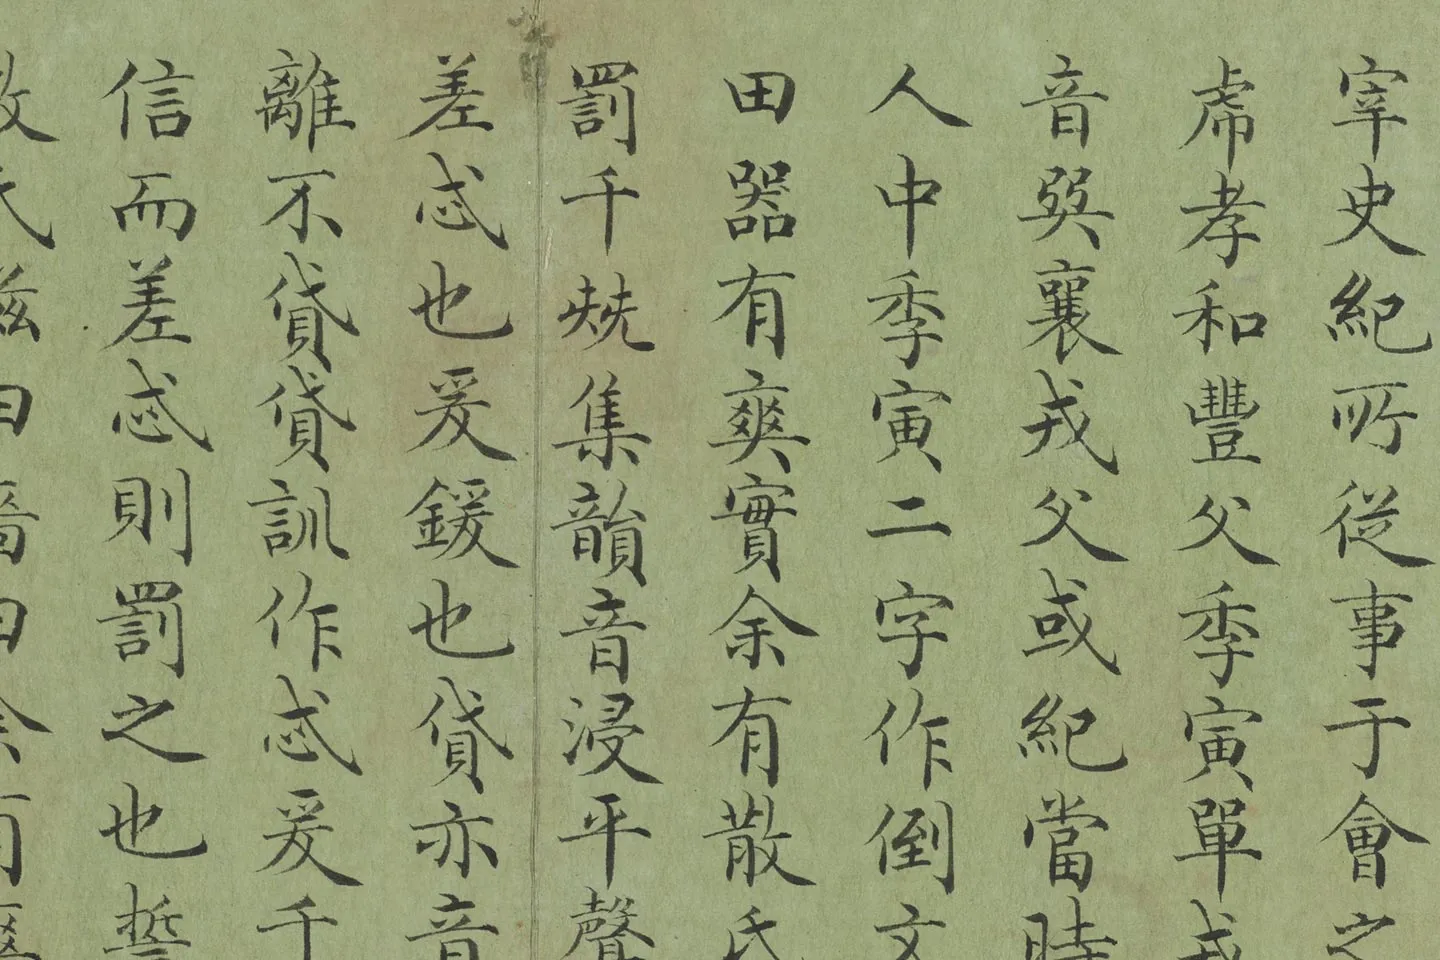 宰史紀所從事于會之
虍孝和豐父季寅單戎
音㢲襄戎父或紀當時
人中季寅二字作倒文
田器有爽實余有散氏
罰千集韻音浸平聲
差忒也爰鍰也貸亦音
離不貸貸訓作忒爰千
信而差忒則罰之也誓